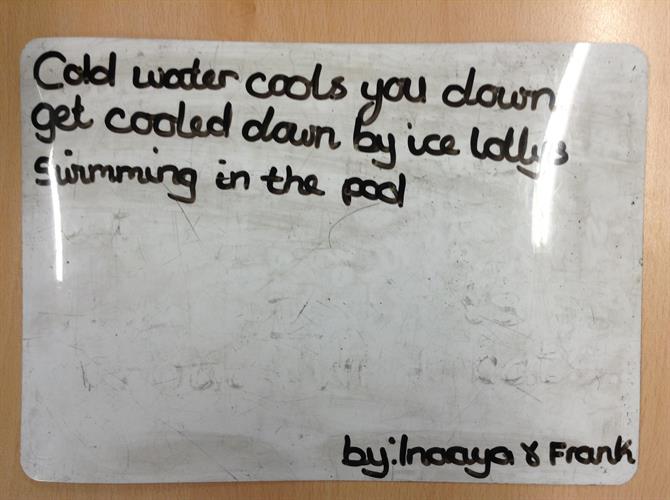 Cold water cools you down
get cooled down by ice lollys
swimming in the pool
by: Inaaya & Frank